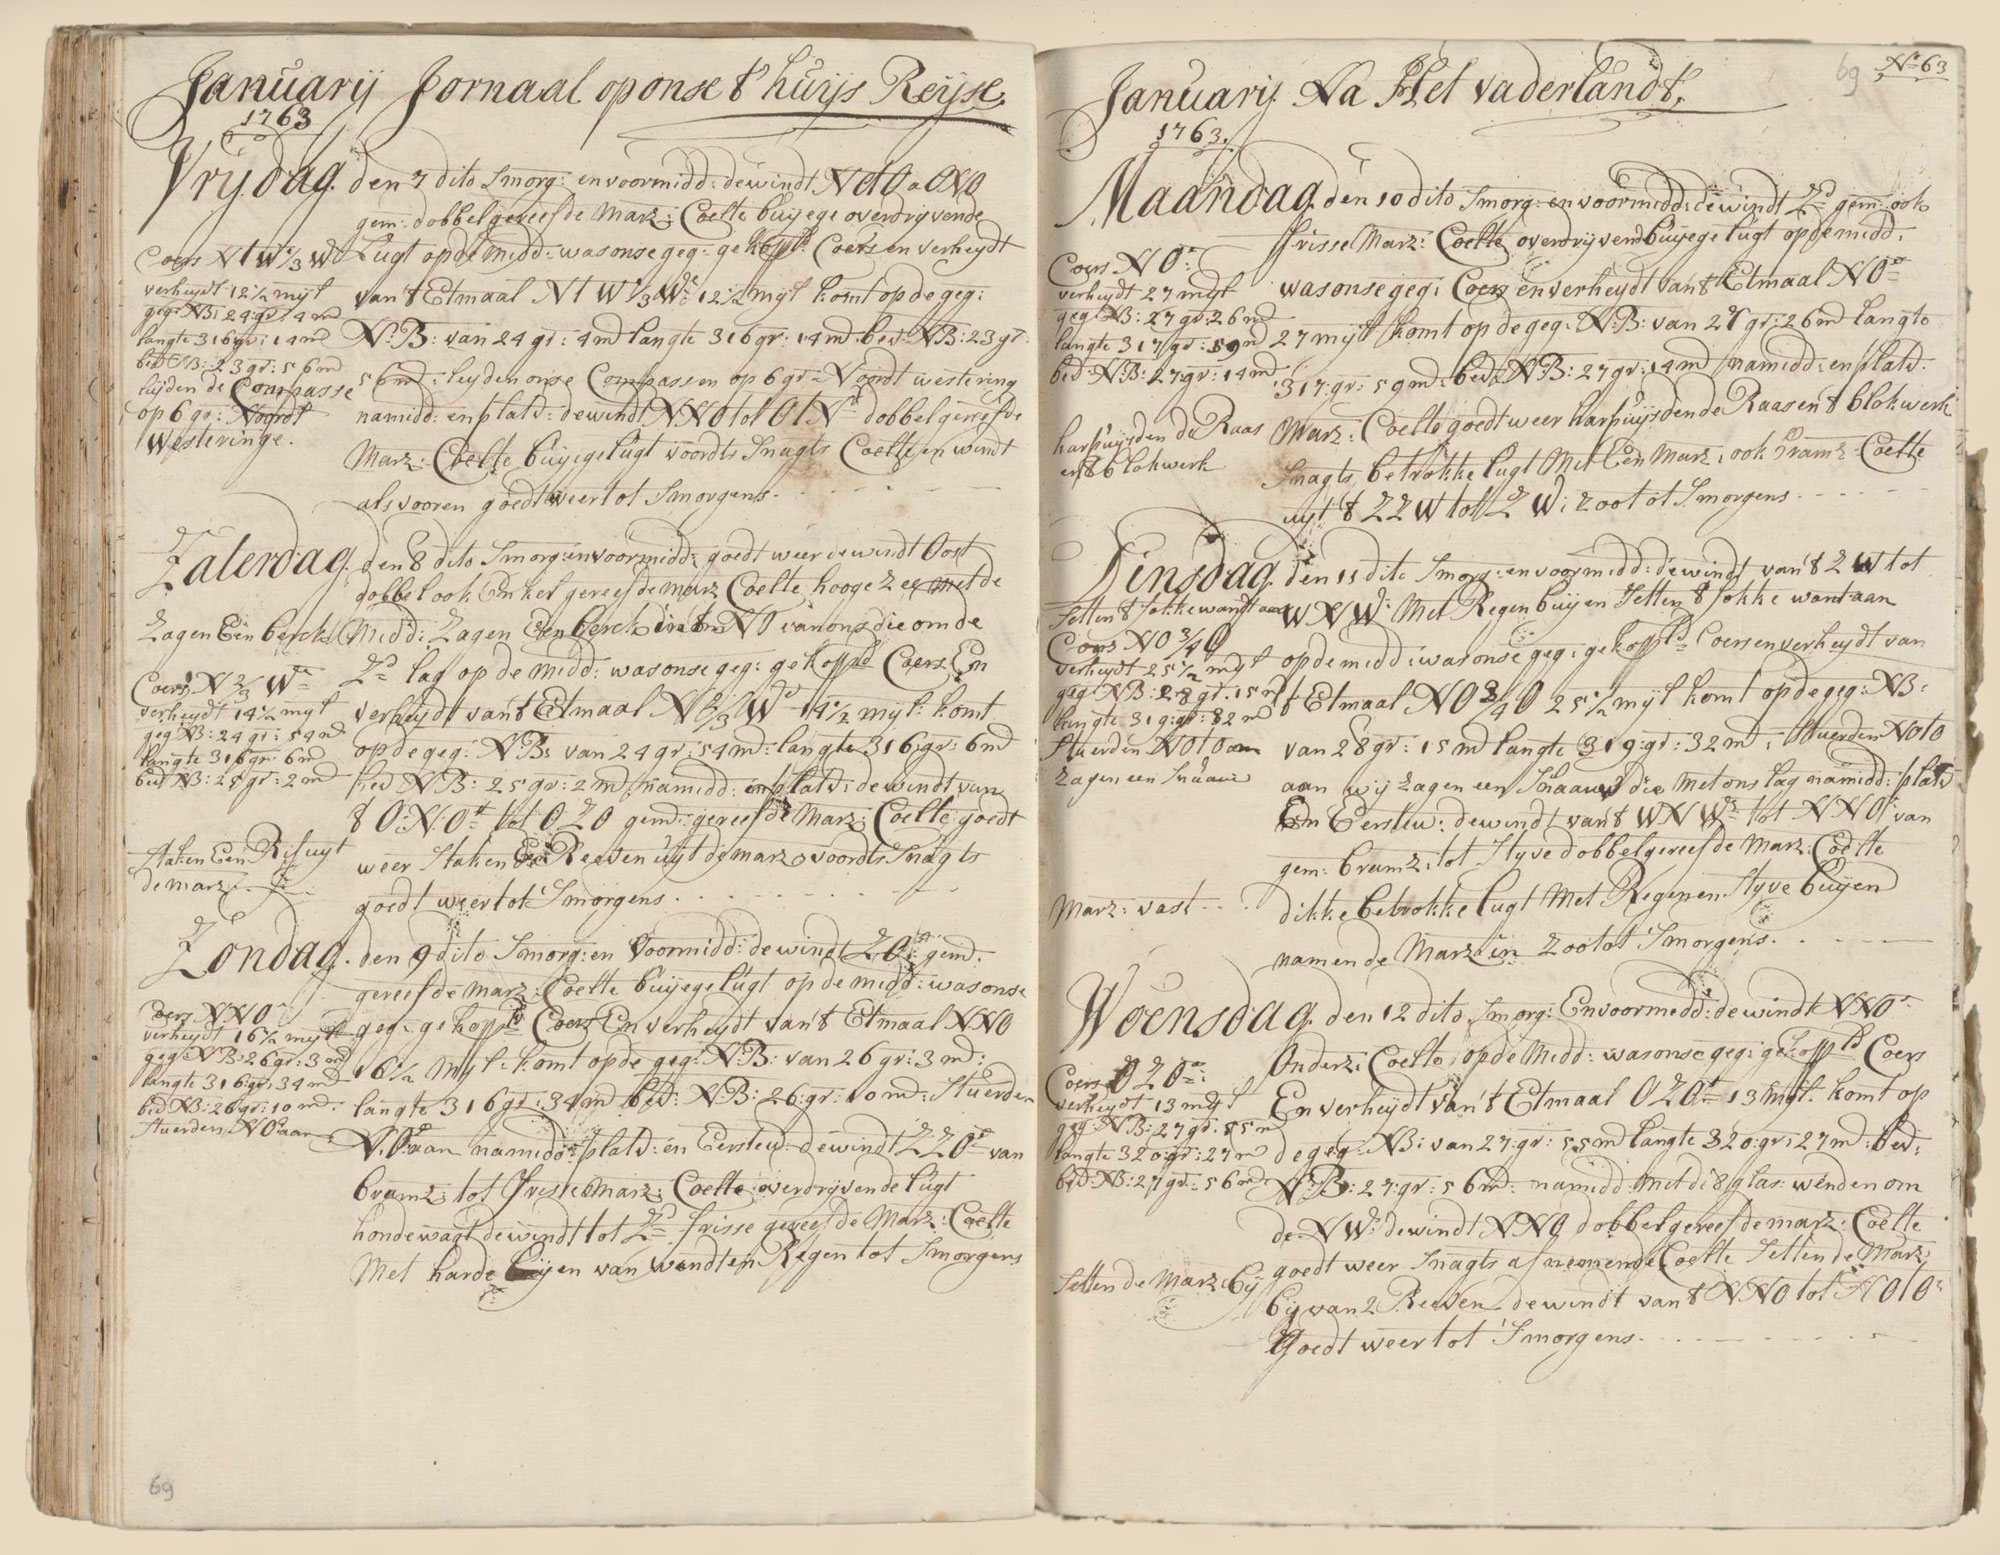 Januarij Jornaal op onse t'huijs Reijse.
1763
Vrijdag. den 7 dito Smorg: en voormidd: de windt NOtO a ONO
gem: dobbel gereefde Marz: Coelte buijege overdrijvende
Lugt op de midd: was onse geg: gekopp:de Coers en verheijdt
van 't Etmaal NtW 1/3 W: 12 1/2 mijl komt op de geg:
N:B: van 24 gr: 4 md langte 316 gr: 14 md: bev: NB: 23 gr:
56 md: leijden onse Compassen op 6 gr: Noordt westering
namidd: en platd: de windt NNO tot OtN dobbel gereefde
Marz: Coelte buijege lugt voordts Snagts Coelte en windt
als vooren goedt weer tot Smorgens.
Coers NtW 1/3 W
verheijdt 12 1/2 mijl
geg: NB: 24: gr: 4 md
langte 316 gr: 14 md
bev NB: 23 gr: 56 md
leijden de Compasse
op 6 gr: Noordt
Westeringe.
Zaterdag. den 8 dito Smorg: en voormidd: goedt weer de windt Oost
dobbel ook Enkel gereefde marz Coelte hooge Zee met de
Midd: Zagen Een berck in 't NO van ons die om de
Zd lag op de midd: was onse geg: gekoppde Coers En
verheijdt van 't Etmaal N 2/3 W 14 1/2 mijl: komt
op de geg: N:B: van 24 gr: 54 md: langte 316 gr: 6 md
bed NB: 25 gr: 2 md namidd: en platd: de windt van
't O:N:O: tot OZO gemd: gereefde Marz: Coelte goedt
weer staken Een Reeven uijt de marz voordts Snagts
goedt weer tot Smorgens.
Zagen Een berck
Coers N 2/3 W
verheijdt 14 1/2 mijl
geg NB: 24 gr: 54 md
langte 316 gr: 6 md
bed NB: 25 gr: 2 md
staken Een Rif uijt
de marz:
Zondag. den 9 dito Smorg: en Voormidd: de windt ZO: gemd:
gereefde marz: Coelte buijege lugt op de midd: was onse
geg: gekoppde Coers En verheijdt van 't Etmaal NNO
16 1/2 Mijl: komt op de geg: N:B: van 26 gr: 3 md:
langte 316 gr: 34 md bed: N:B: 26: gr: 10 md: Stuerden
N.O. aan namidd: platd: en Eerstew: de windt ZZO van
bramz: tot frisse Marz: Coelte overdrijvende lugt
hondewagt de windt tot Zd frisse gereefde Marz: Coelte
Met harde buijen van windt en Regen tot Smorgens
Coers NNO
verheijdt 16 1/2 mijl
geg: NB: 26 gr: 3 md
langte 316 gr: 34 md
bed NB: 26 gr: 10 md:
stuerden NO aan
69
69
No 63
Januarij. Na Het vaderlandt.
1763.
Maandag. den 10 dito Smorg: en voormidd: de windt Zd gem: ook
frisse Marz: Coelte overdrijvend buijege lugt op de midd:
was onse geg: Coers en verheijdt van 't Etmaal NO
27 mijl komt op de geg: N:B: van 27 gr: 26 md langte
317: gr: 59 md: bed: NB: 27 gr: 14 md namidd: en platd:
Marz: Coelte goedt weer harpuijsden de Raas en 't blokwerk
Snagts, betrokke lugt Met Een Marz: ook bramz: Coelte
uijt 't ZZW tot ZW: Zoo tot Smorgens.
Coers NO:
verheijdt 27 mijl
geg: NB: 27 gr: 26 md
langte 317 gr: 59 md
bed: NB: 27 gr: 14 md
harpuijsden de Raas
en 't blokwerk
Dinsdag. den 11 dito Smorg: en voormidd: de windt van 't ZW tot
WNW: Met Regen buijen Setten 't fokke want aan
op de midd: was onse geg: gekoppde Coers en verheijdt van
't Etmaal NO 3/4 O 25 1/2 mijl komt op de geg: NB:
van 28 gr: 15 md langte 319: gr: 32 md: stuerden NOtO
aan wij Zagen een Snaauw die Met ons lag namidd: platd
En Eerstew: de windt van 't WNW tot NNO van
gem: bramz: tot Styve dobbel gereefde Marz: Coelte
dikke betrokke lugt Met Regen en Styve buijen
namen de Marz in Zoo tot Smorgens.
Setten 't fokkewandt aan
Coers NO 3/4 O
verheijdt 25 1/2 mijl
geg NB: 28 gr: 15 md
langte 319: gr: 32 md
Stuerden NOtO aan
Zagen een Snauw
Marz: vast
Woensdag. den 12 dito Smorg: En voormidd: de windt NNO
Onderz: Coelte, op de Midd: was onse geg: gekoppde Coers
En verheijdt van 't Etmaal OZO 13 mijl: komt op
de geg: NB: van 27: gr: 55 md langte 320: gr: 27 md: bed:
N:B: 27: gr: 56 md: namidd: met di 8 glas: wenden om
de NW: de windt NNO dobbel gereefde marz: Coelte
goedt weer Snagts afnemende Coelte Setten de Marz:
bij van 2 Reeven de windt van 't NNO tot NOtO
Goedt weer tot Smorgens.
Coers OZO:
verheijdt 13 mijl
geg: NB: 27 gr: 55 md
langte 320 gr: 27 m
bed: NB: 27 gr: 56 md
Setten de Marz: bij